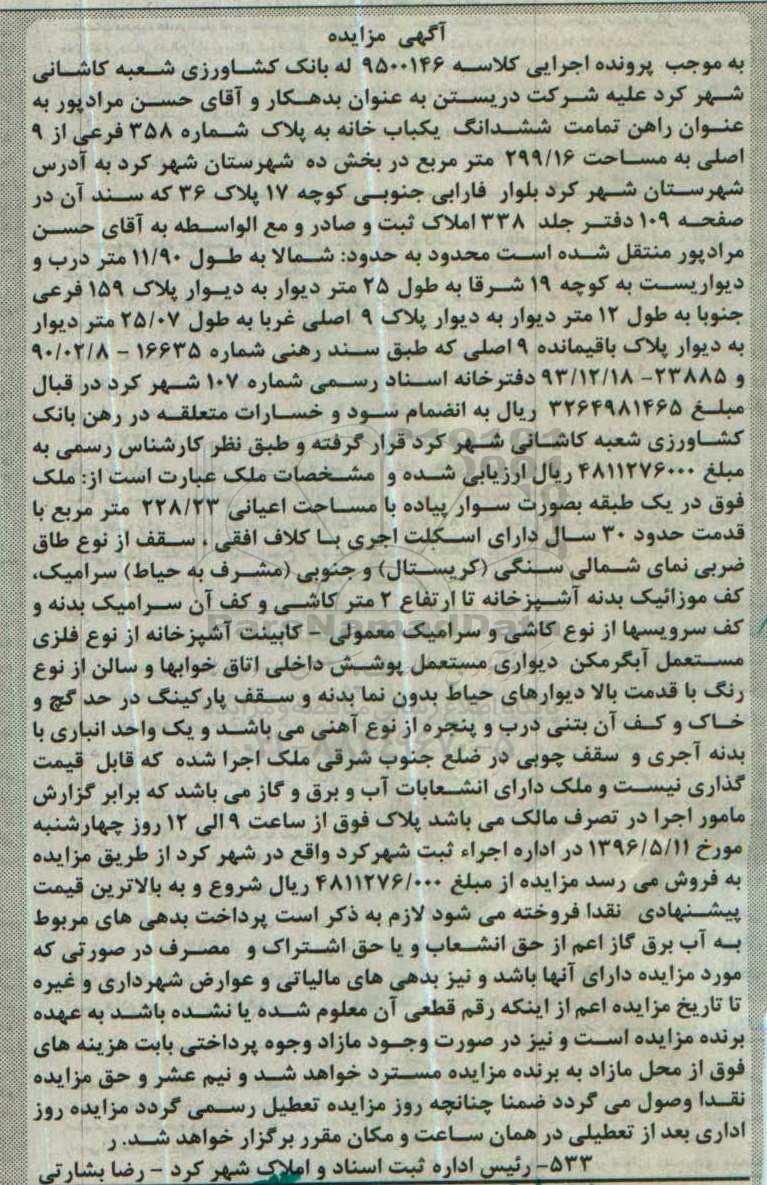 آگهی مزایده
به موجب پرونده اجرایی کلاسه ۹۵۰۰۱۴۶ له بانک کشاورزی شعبه کاشانی
شهر کرد علیه شرکت دریستن به عنوان بدهکار و آقای حسن مرادپور به
عنوان راهن تمامت ششدانگ یکباب خانه به پلاک شماره ۳۵۸ فرعی از ۹
اصلی به مساحت ۲۹۹/۱۶ متر مربع در بخش ده شهرستان شهر کرد به آدرس
شهرستان شهر کرد بلوار فارابی جنوبی کوچه ۱۷ پلاک ۳۶ که سند آن در
صفحه ۱۰۹ دفتر جلد ۳۳۸ املاک ثبت و صادر و مع الواسطه به آقای حسن
مرادپور منتقل شده است محدود به حدود: شمالا به طول ۱۱/۹۰ متر درب و
دیواریست به کوچه ۱۹ شرقا به طول ۲۵ متر دیوار به دیوار پلاک ۱۵۹ فرعی
جنوبا به طول ۱۲ متر دیوار به دیوار پلاک ۹ اصلی غربا به طول ۲۵/۰۷ متر دیوار
به دیوار پلاک باقیمانده ۹ اصلی که طبق سند رهنی شماره ۱۶۶۳۵ - ۹۰/۰۲/۸
و ۲۳۸۸۵- ۹۳/۱۲/۱۸ دفترخانه اسناد رسمی شماره ۱۰۷ شهر کرد در قبال
مبلغ ۳۲۶۴۹۸۱۴۶۵ ریال به انضمام سود و خسارات متعلقه در رهن بانک
کشاورزی شعبه کاشانی شهر کرد قرار گرفته و طبق نظر کارشناس رسمی به
مبلغ ۴۸۱۱۲۷۶۰۰۰ ریال ارزیابی شده و مشخصات ملک عبارت است از: ملک
فوق در یک طبقه بصورت سوار پیاده با مساحت اعیانی ۲۲۸/۲۳ متر مربع با
قدمت حدود ۳۰ سال دارای اسکلت اجری با کلاف افقی ، سقف از نوع طاق
ضربی نمای شمالی سنگی (کریستال) و جنوبی (مشرف به حیاط) سرامیک،
کف موزائیک بدنه آشپزخانه تا ارتفاع ۲ متر کاشی و کف آن سرامیک بدنه و
کف سرویسها از نوع کاشی و سرامیک معمولی - کابینت آشپزخانه از نوع فلزی
مستعمل آبگرمکن دیواری مستعمل پوشش داخلی اتاق خوابها و سالن از نوع
رنگ با قدمت بالا دیوارهای حیاط بدون نما بدنه و سقف پارکینگ در حد گچ و
خاک و کف آن بتنی درب و پنجره از نوع آهنی می باشد و یک واحد انباری با
بدنه آجری و سقف چوبی در ضلع جنوب شرقی ملک اجرا شده که قابل قیمت
گذاری نیست و ملک دارای انشعابات آب و برق و گاز می باشد که برابر گزارش
مامور اجرا در تصرف مالک می باشد پلاک فوق از ساعت ۹ الی ۱۲ روز چهارشنبه
مورخ ۱۳۹۶/۵/۱۱ در اداره اجراء ثبت شهرکرد واقع در شهر کرد از طریق مزایده
به فروش می رسد مزایده از مبلغ ۴۸۱۱۲۷۶/۰۰۰ ریال شروع و به بالاترین قیمت
پیشنهادی نقدا فروخته می شود لازم به ذکر است پرداخت بدهی های مربوط
به آب برق گاز اعم از حق انشعاب و یا حق اشتراک و مصرف در صورتی که
مورد مزایده دارای آنها باشد و نیز بدهی های مالیاتی و عوارض شهرداری و غیره
تا تاریخ مزایده اعم از اینکه رقم قطعی آن معلوم شده یا نشده باشد به عهده
برنده مزایده است و نیز در صورت وجود مازاد وجوه پرداختی بابت هزینه های
فوق از محل مازاد به برنده مزایده مسترد خواهد شد و نیم عشر و حق مزایده
نقدا وصول می گردد ضمنا چنانچه روز مزایده تعطیل رسمی گردد مزایده روز
اداری بعد از تعطیلی در همان ساعت و مکان مقرر برگزار خواهد شد. ر
۵۳۳- رئیس اداره ثبت اسناد و املاک شهر کرد - رضا بشارتی